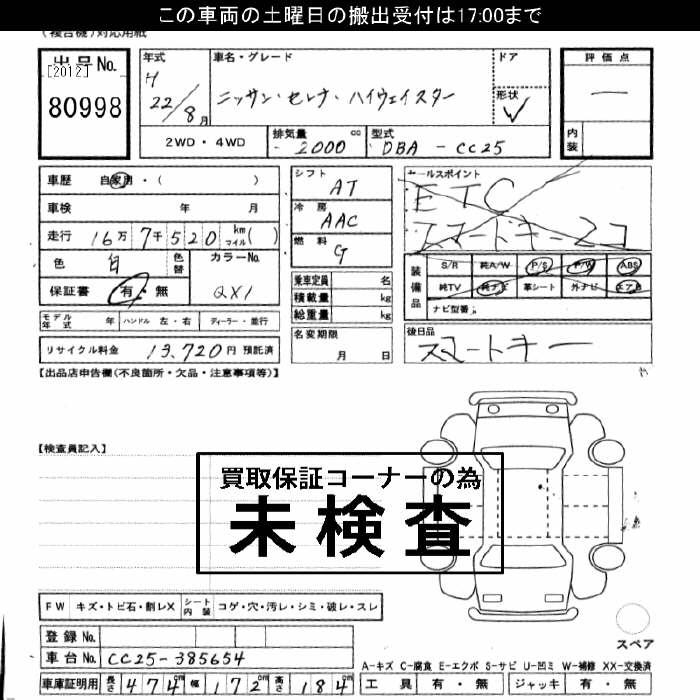 この車両の土曜日の搬出受付は17:00まで
(複合機)対応用紙
出品No. [2012] 80998
年式 22/8月
車名・グレード ニッサン・セレナ・ハイウェイスター
ドア 形状
評価点 ー 内装
2WD・4WD 排気量 2000 cc 型式 DBA-CC25
車歴 自家用・( )
車検 年 月
走行 16万7千520 km マイル( )
色 白 色替 カラーNo. QX1
保証書 有・無
モデル年式 年 ハンドル 左・右 ディーラー・並行
リサイクル料金 13,720円 預託済
シフト AT
冷房 AAC
燃料 G
乗車定員 名
積載量 kg
総重量 kg
名変期限 月 日
セールスポイント
ETC
スマートキー2コ
装備品 S/R 純A/W P/S P/W ABS
純TV 純ナビ 革シート 外ナビ エアB
ナビ型番:
後日品
スマートキー
【出品店申告欄(不良箇所・欠品・注意事項等)】
【検査員記入】
買取保証コーナーの為
未検査
FW キズ・トビ石・割レX シート内装 コゲ・穴・汚レ・シミ・破レ・スレ
登録No.
車台No. CC25-385654
車庫証明用 長さ 474cm 幅 172cm 高さ 184cm
スペア
A-キズ C-腐食 E-エクボ S-サビ U-凹ミ W-補修 XX-交換済
工具 有・無 ジャッキ 有・無